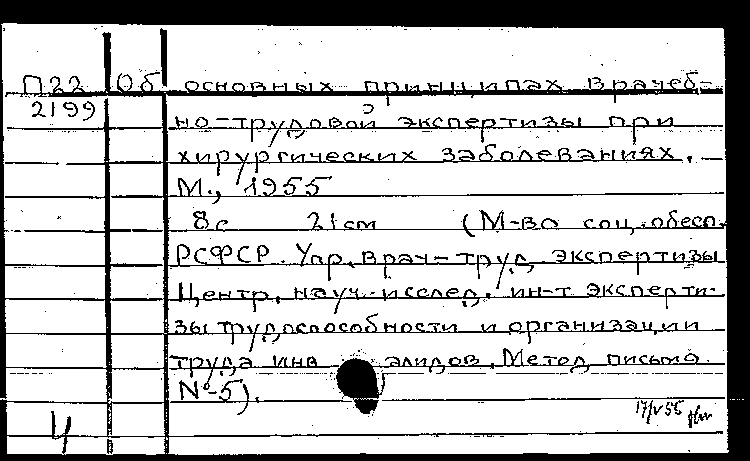 П22 Об основных принципах врачеб-
2199 но-трудовой экспертизы при
хирургических заболеваниях.
М., 1955
8с 21см (М-во соц. обесп.
РСФСР. Упр. врач-труд. экспертизы
Центр. науч.-исслед. ин-т эксперти-
зы трудоспособности и организации
труда инвалидов. Метод письмо
№-5).
17/V 55
Ч